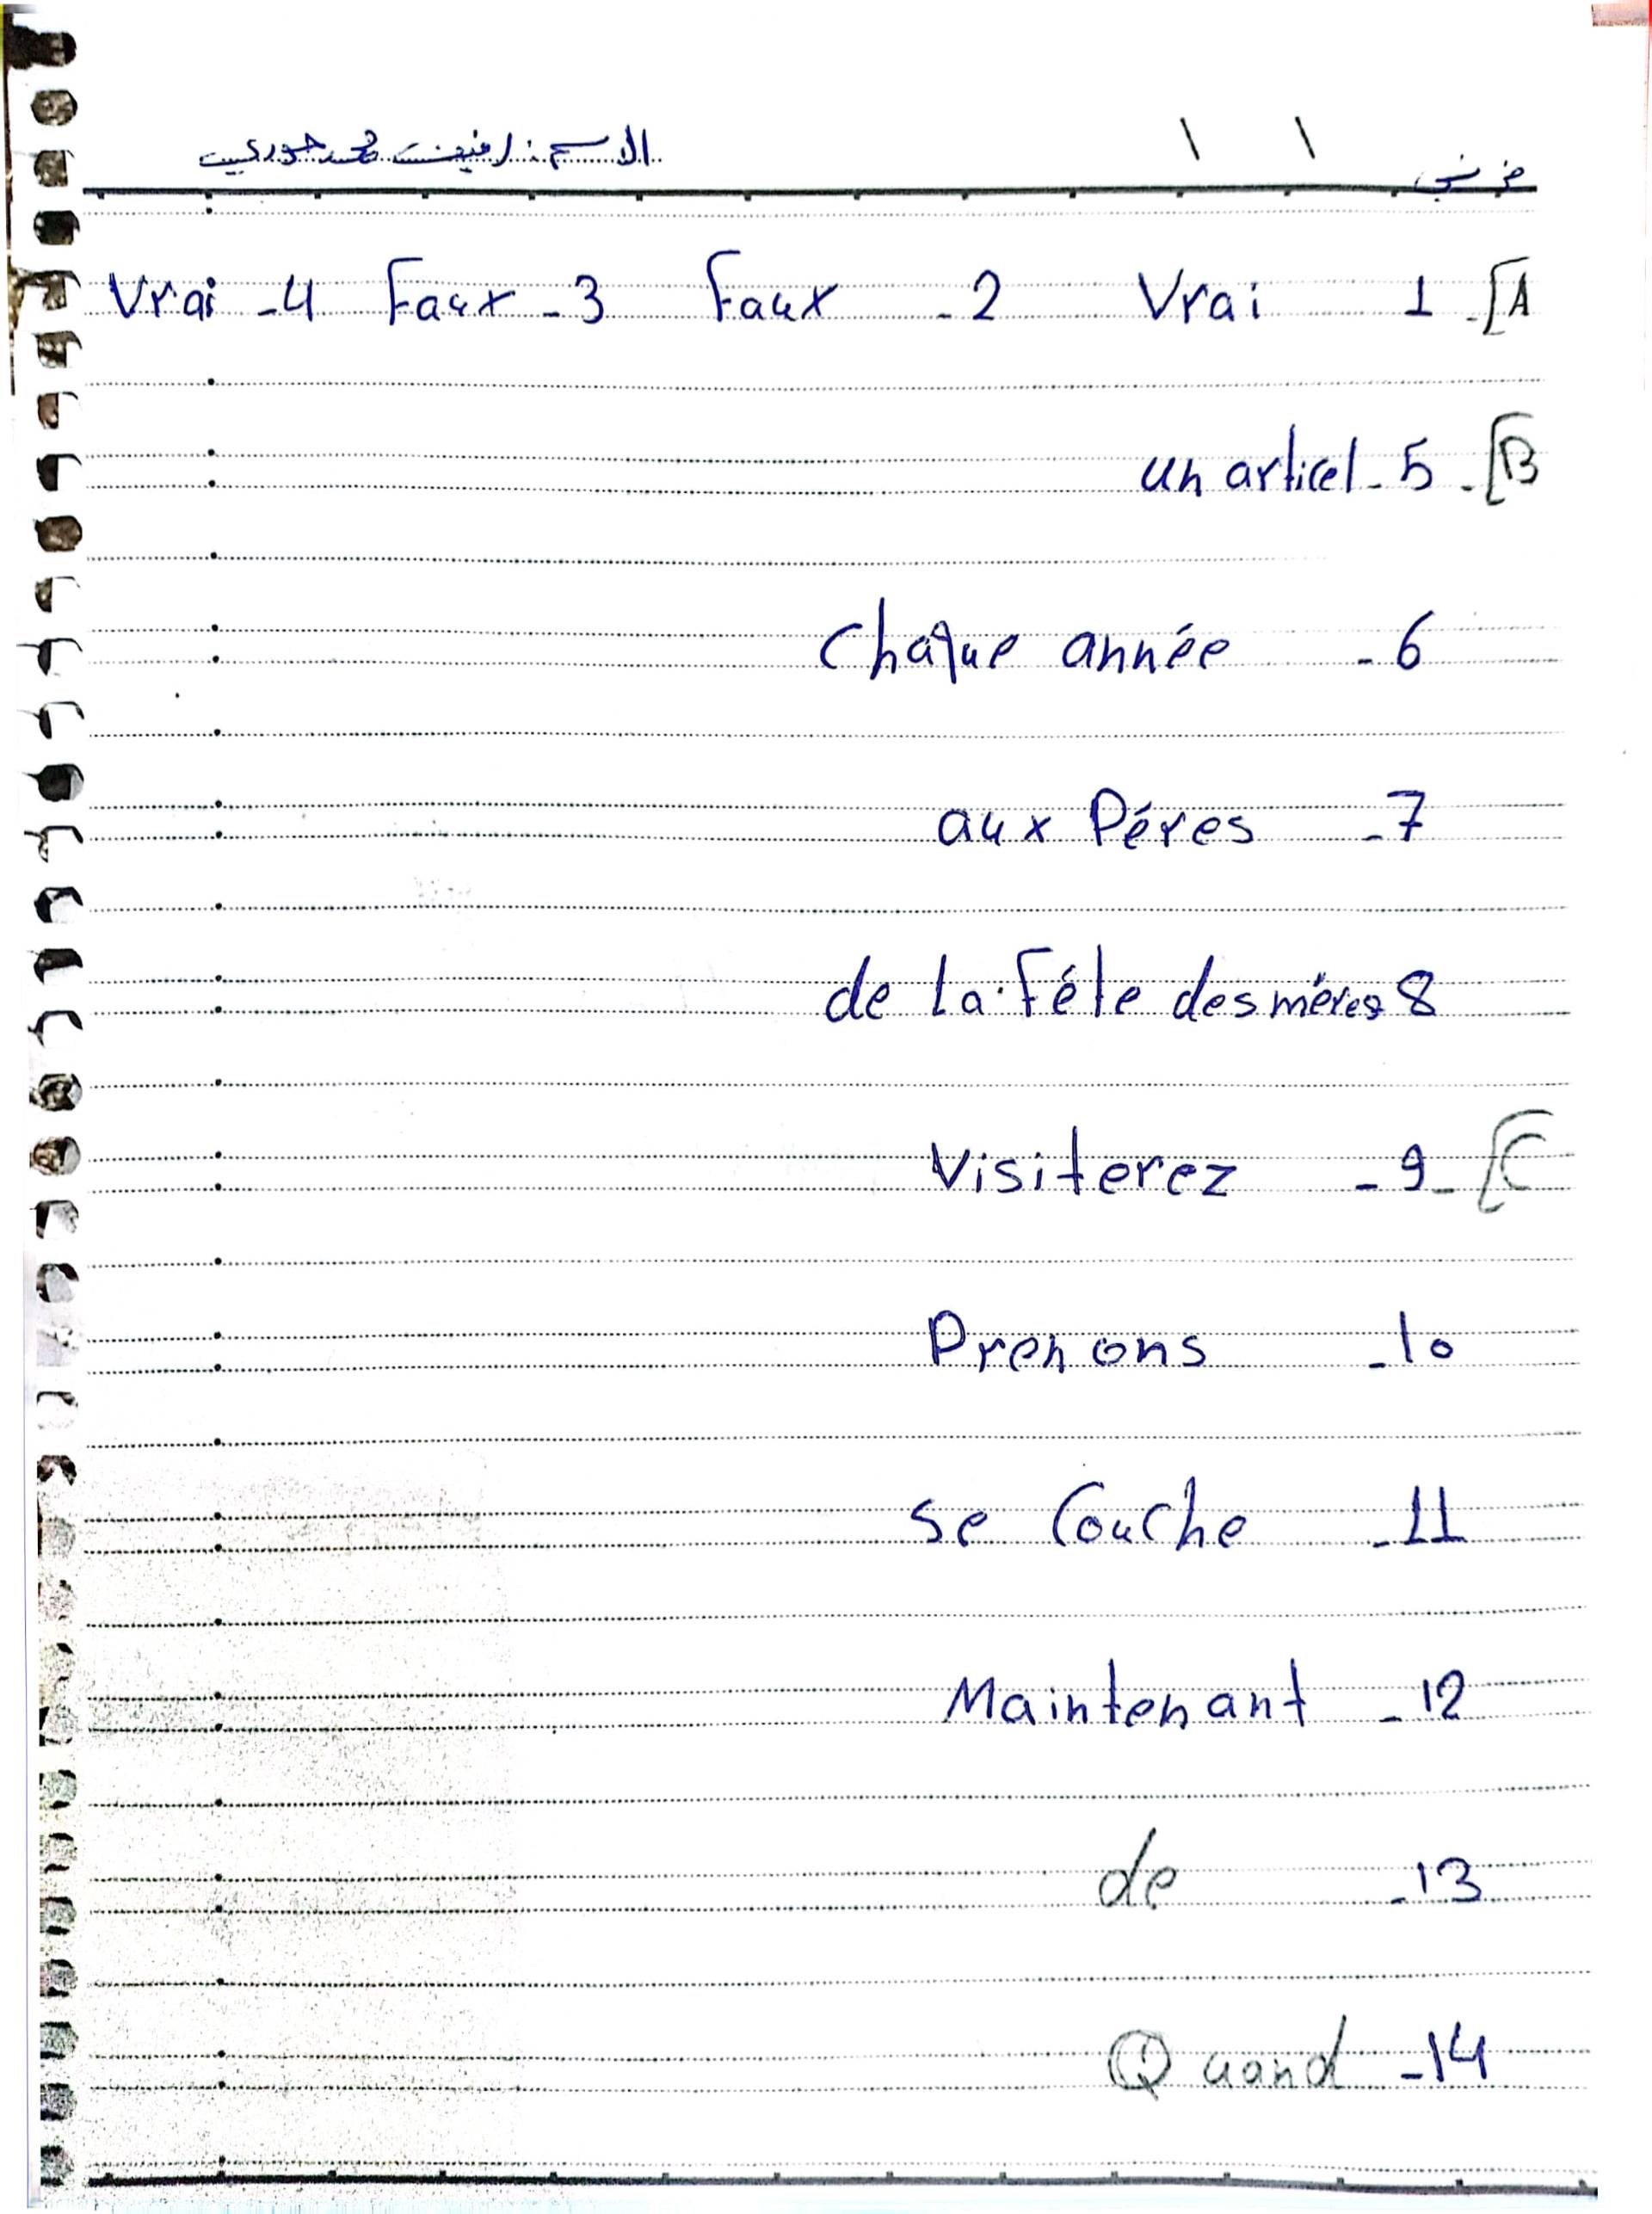 فرنسي \ \ الاسم:
A] - 1 Vrai 2 - Faux 3 - Faux 4 - Vrai
B] - 5 - un articel
6 - Chaque année
7 - aux Péres
8 de la Féte des méres
C] - 9 - Visiterez
10 - Prenons
11 - se Couche
12 - Maintenant
13 - de
14 - Quand